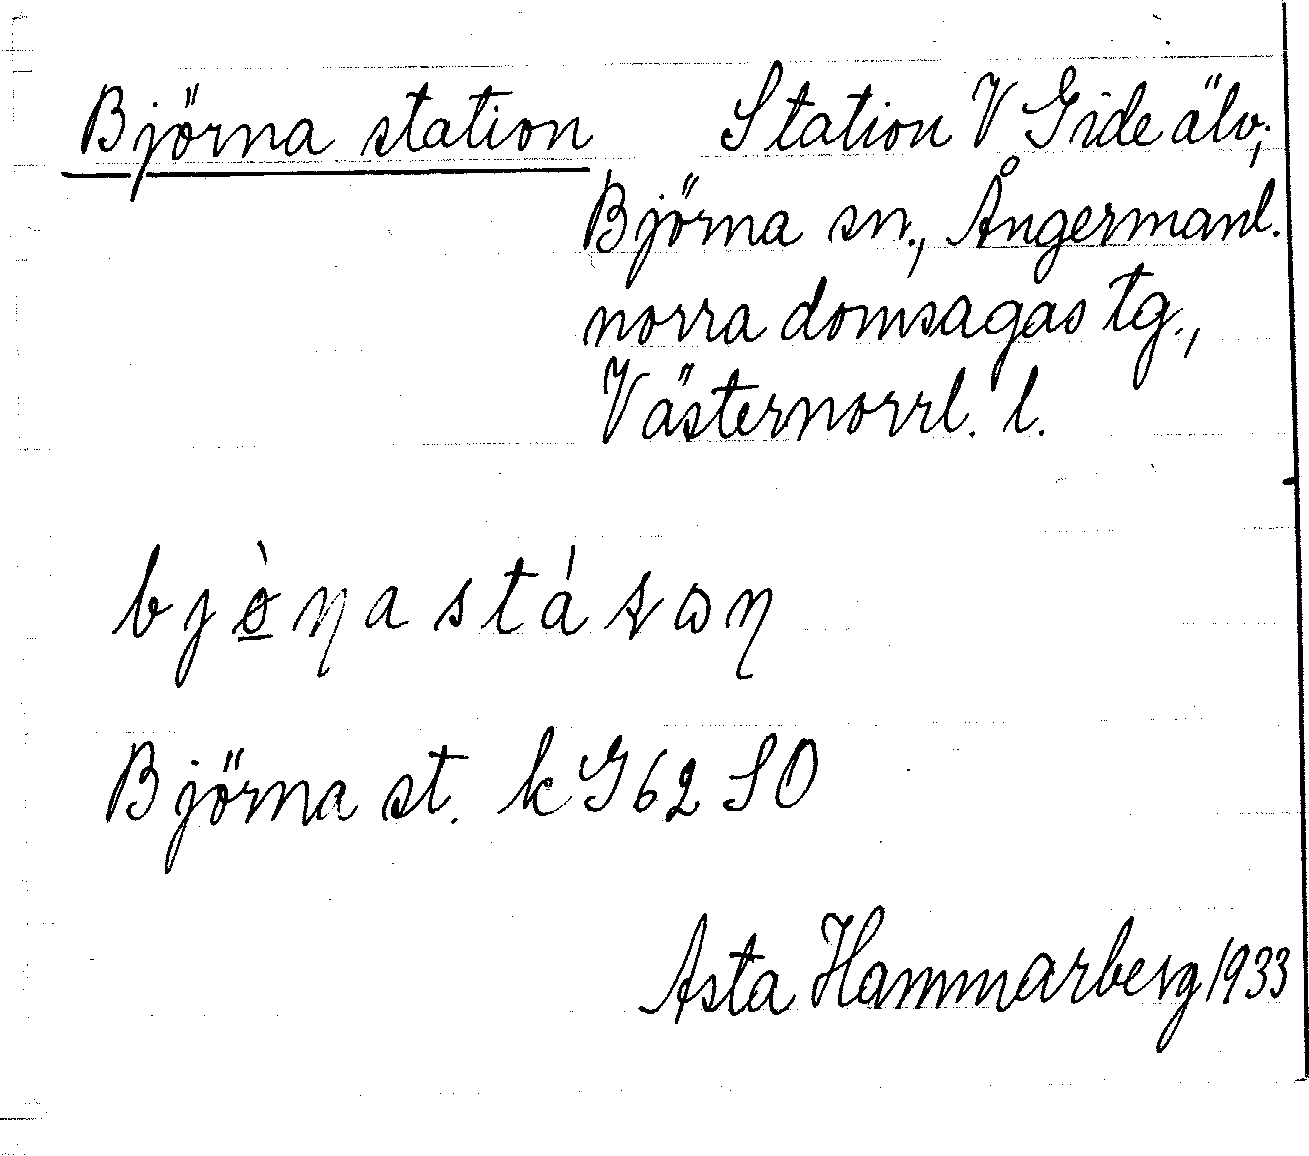 Björna station Station V Gide älv;
Björna sn., Ångermanl.
norra domsagas tg.,
Västernorrl. l.
Björna st. k G 62 SO
Asta Hammarberg 1933